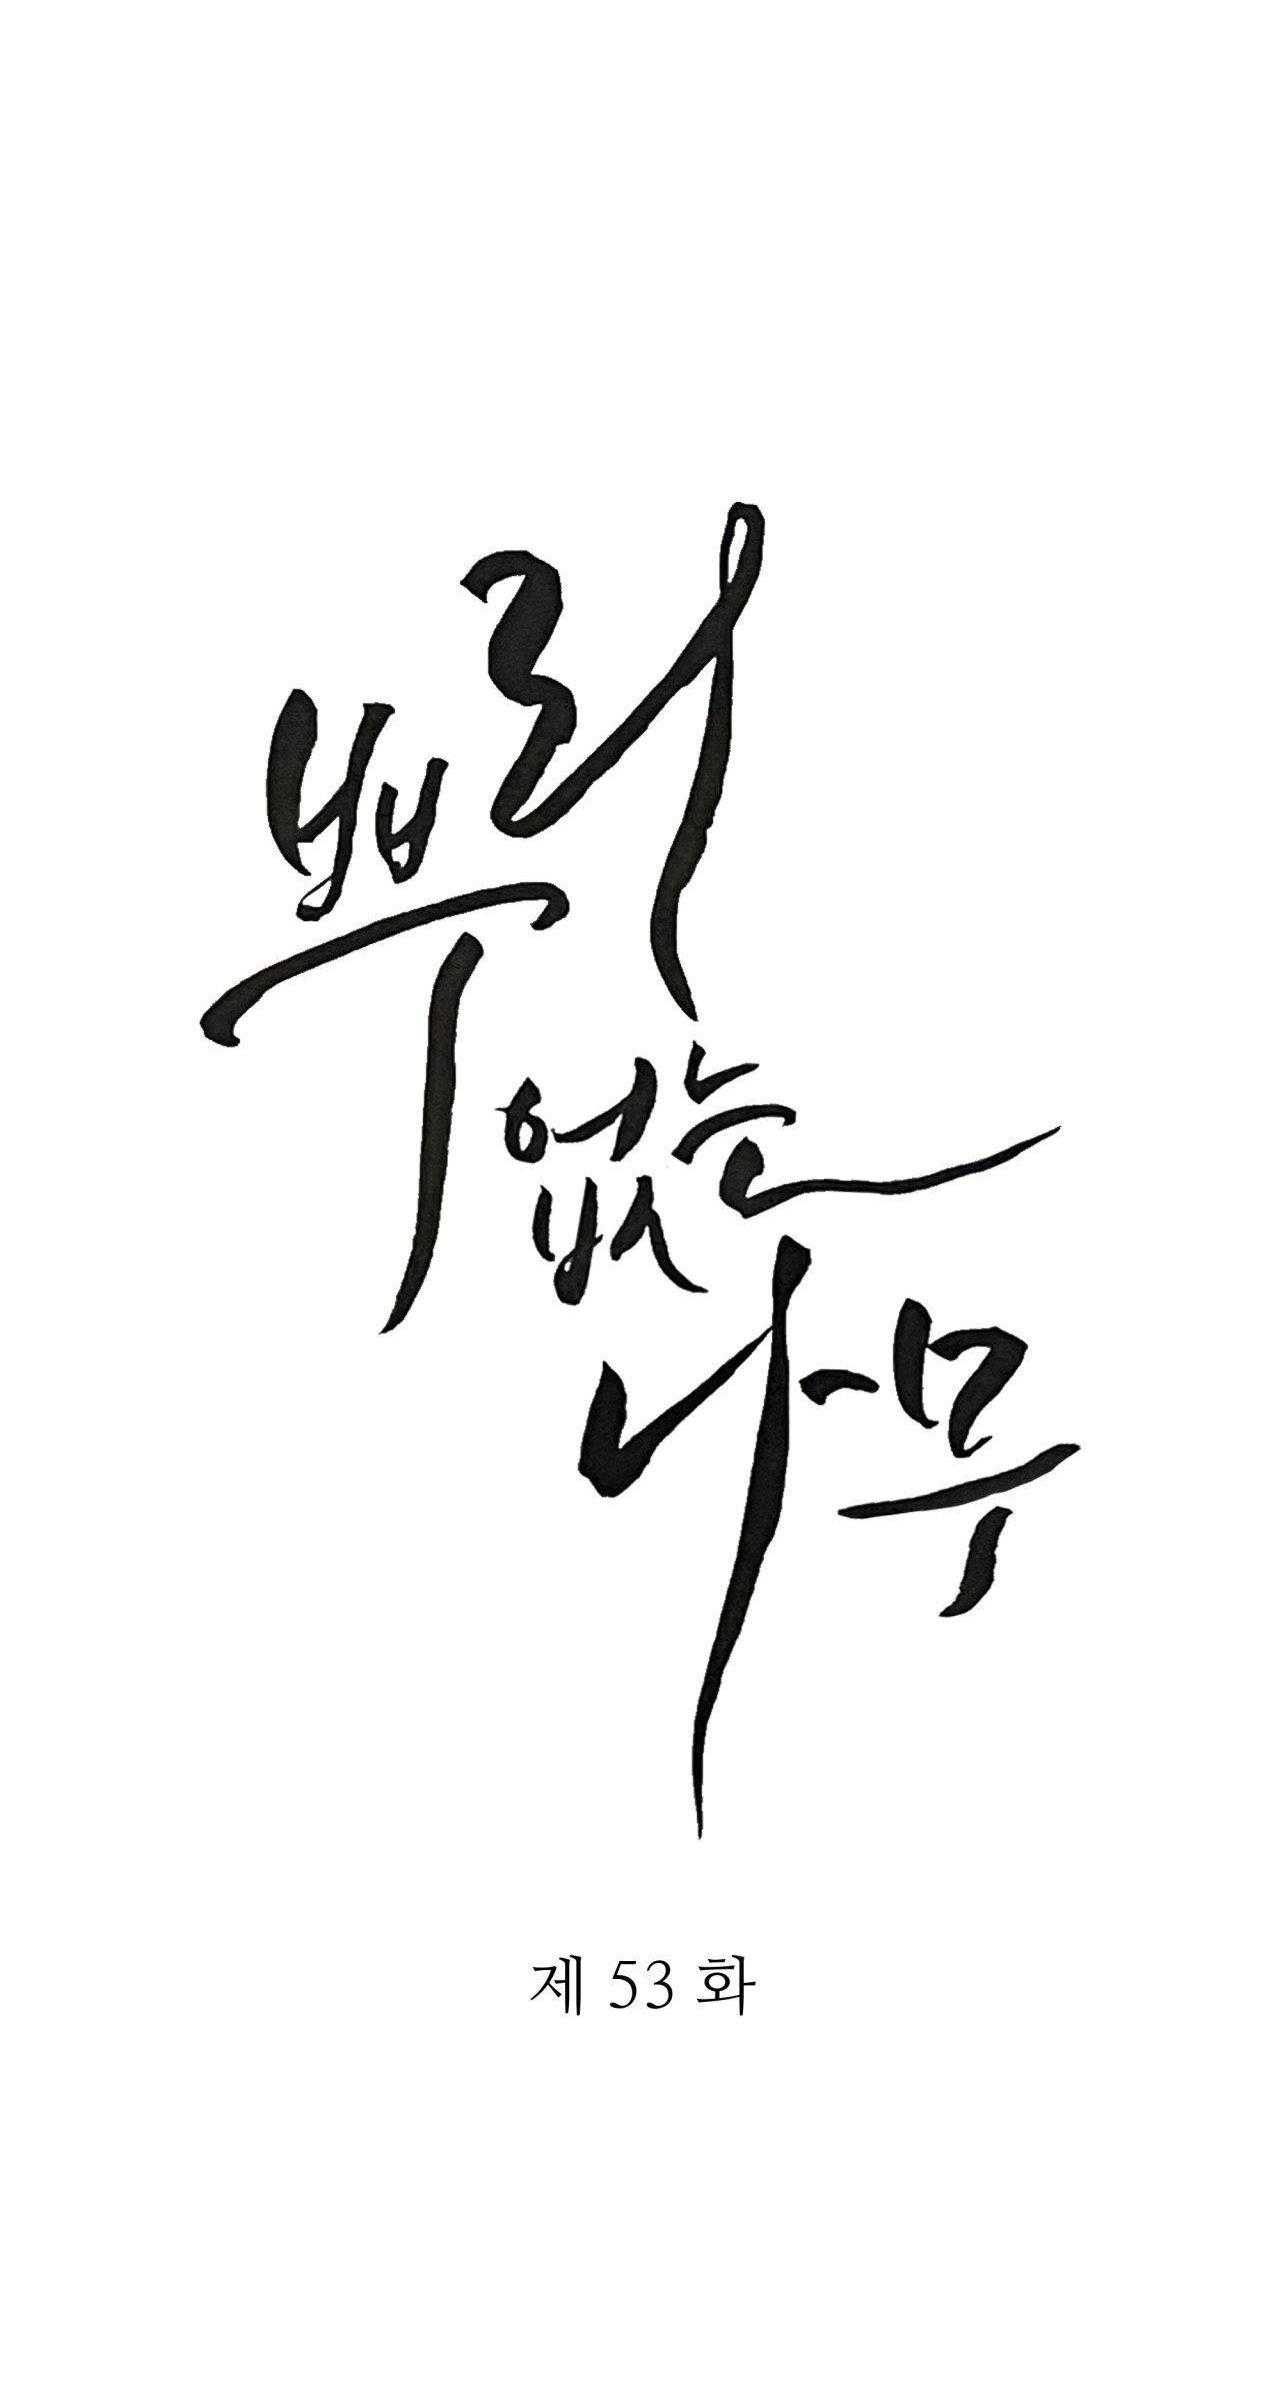 뿌리
없는
나무
제 53 화